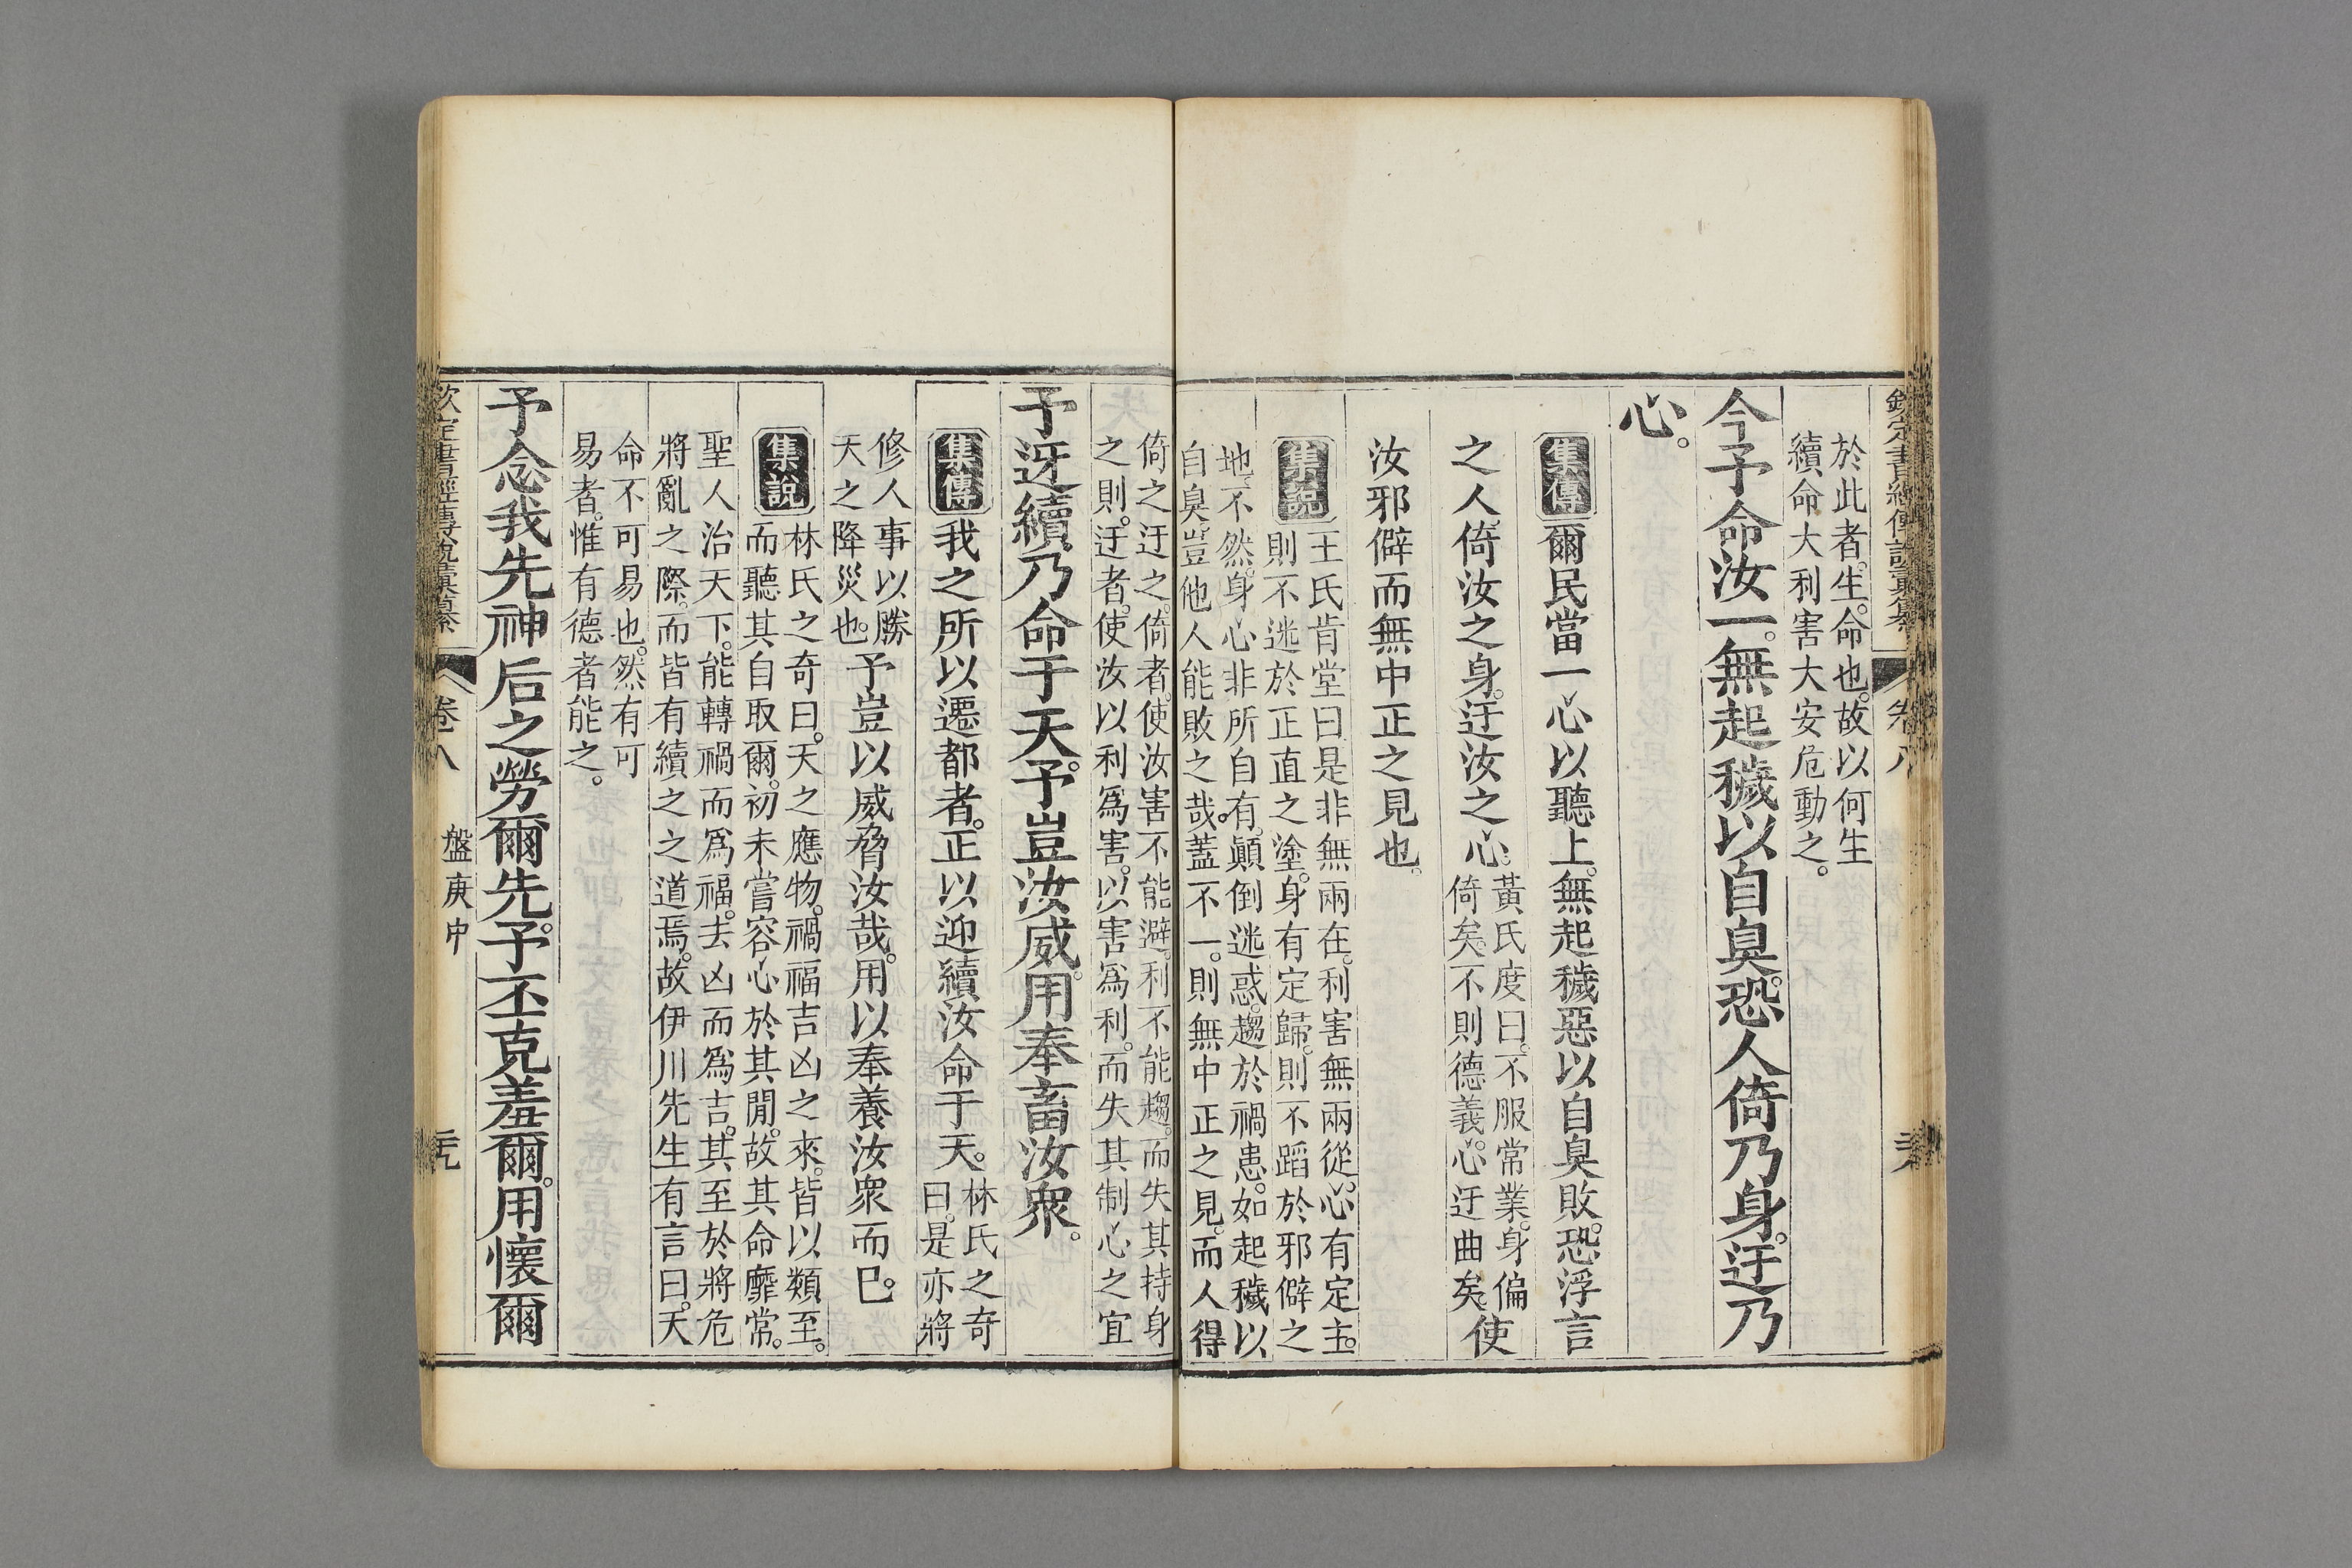 欽定書經傳說彙纂 卷八
於此者。生。命也。故以何生
續命大利害大安危動之。
今予命汝一。無起穢以自臭。恐人倚乃身。迂乃
心。
集傳 爾民當一心以聽上。無起穢惡以自臭敗。恐浮言
之人倚汝之身。迂汝之心。黃氏度曰。不服常業。身偏倚矣。不則德義。心迂曲矣。使
汝邪僻而無中正之見也。
集說 王氏肯堂曰是非無兩在。利害無兩從。心有定主。
則不迷於正直之塗。身有定歸。則不蹈於邪僻之
地。不然。身心非所自有。顛倒迷惑。趨於禍患。如起穢以
自臭。豈他人能敗之哉。蓋不一。則無中正之見。而人得
倚之迂之。倚者。使汝害不能避。利不能趨。而失其持身
之則。迂者。使汝以利爲害。以害爲利。而失其制心之宜
予迓續乃命于天。予豈汝威。用奉畜汝衆。
集傳 我之所以遷都者。正以迎續汝命于天。林氏之奇曰。是亦將
修人事以勝天之降災也。予豈以威脅汝哉。用以奉養汝衆而已。
集說 林氏之奇曰。天之應物。禍福吉凶之來。皆以類至。
而聽其自取爾。初未嘗容心於其閒。故其命靡常。
聖人治天下。能轉禍而爲福。去凶而爲吉。其至於將危
將亂之際。而皆有續之之道焉。故伊川先生有言曰。天
命不可易也。然有可
易者。惟有德者能之。
予念我先神后之勞爾先。予丕克羞爾。用懷爾
欽定書經傳說彙纂 卷八 盤庚中